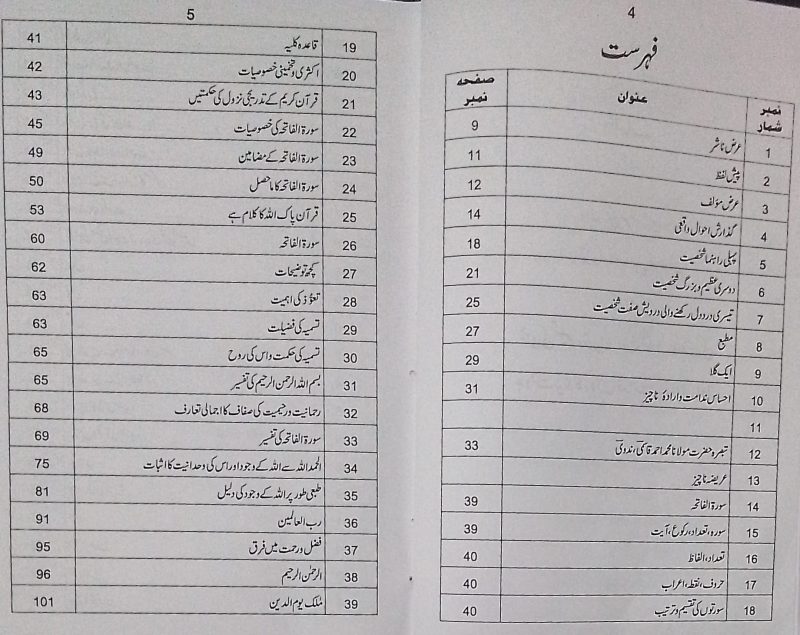 4
فہرست
نمبر شمار عنوان صفحہ نمبر
1 عرض ناشر 9
2 پیش لفظ 11
3 عرض مؤلف 12
4 گذارش احوال واقعی 14
5 پہلی راہنما شخصیت 18
6 دوسری عظیم و بزرگ شخصیت 21
7 تیسری درد دل رکھنے والی درویش صفت شخصیت 25
8 مطبع 27
9 ایک گلا 29
10 احساس ندامت و ارادۂ ناچیز 31
11
12 تبصرہ حضرت مولانا محمد احمد قاسمی، ندوی 33
13 عریضہ ناچیز
14 سورۃ الفاتحہ 39
15 سورہ، تعداد، رکوع، آیت 39
16 تعداد، الفاظ 40
17 حروف، نقطہ، اعراب 40
18 سورتوں کی تقسیم و ترتیب 40
5
19 قاعدہ کلیہ 41
20 اکثری و تخمینی خصوصیات 42
21 قرآن کریم کے تدریجی نزول کی حکمتیں 43
22 سورۃ الفاتحہ کی خصوصیات 45
23 سورۃ الفاتحہ کے مضامین 49
24 سورۃ الفاتحہ کا ماحصل 50
25 قرآن پاک اللہ کا کلام ہے 53
26 سورۃ الفاتحہ 60
27 کچھ توضیحات 62
28 تعوّذ کی اہمیت 63
29 تسمیہ کی فضیلت 63
30 تسمیہ کی حکمت و اس کی روح 65
31 بسم اللہ الرحمن الرحیم کی تفسیر 65
32 رحمانیت و رحیمیت کی صفاف کا اجمالی تعارف 68
33 سورۃ الفاتحہ کی تفسیر 69
34 الحمد اللہ سے اللہ کے وجود اور اس کی وحدانیت کا اثبات 75
35 طبعی طور پر اللہ کے وجود کی دلیل 81
36 رب العالمین 91
37 فضل و رحمت میں فرق 95
38 الرحمٰن الرحیم 96
39 مٰلک یوم الدین 101